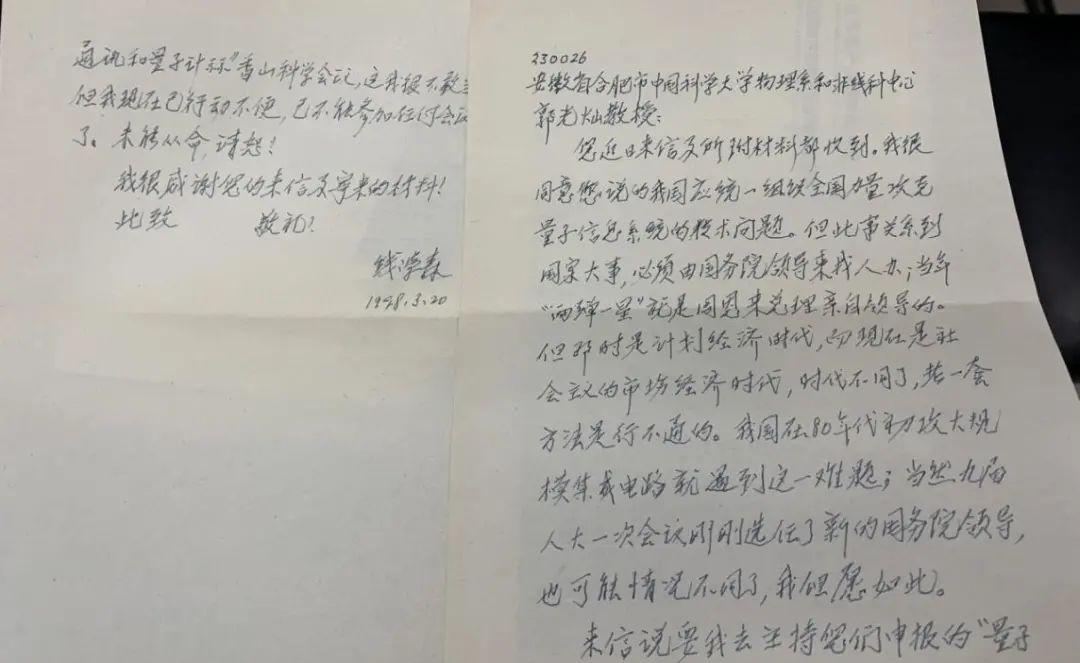 230026
安徽省合肥市中国科学大学物理系和非线科中心
郭光灿教授:
您近日来信及所附材料都收到。我很
同意您说的我国应统一组织全国力量攻克
量子信息系统的技术问题。但此事关系到
国家大事,必须由国务院领导来找人办;当年
“两弹一星”就是周恩来总理亲自领导的。
但那时是计划经济时代,而现在是社
会主义的市场经济时代,时代不同了,老一套
方法是行不通的。我国在80年代初攻大规
模集成电路就遇到这一难题;当然九届
人大一次会议刚刚选任了新的国务院领导,
也可能情况不同了,我但愿如此。
来信说要我去主持您们申报的“量子
通讯和量子计祘”香山科学会议,这我很不敢
但我现在已行动不便,已不能参加任何会议
了。未能从命,请恕!
我很感谢您的来信及寄来的材料!
此致 敬礼!
钱学森
1998.3.20